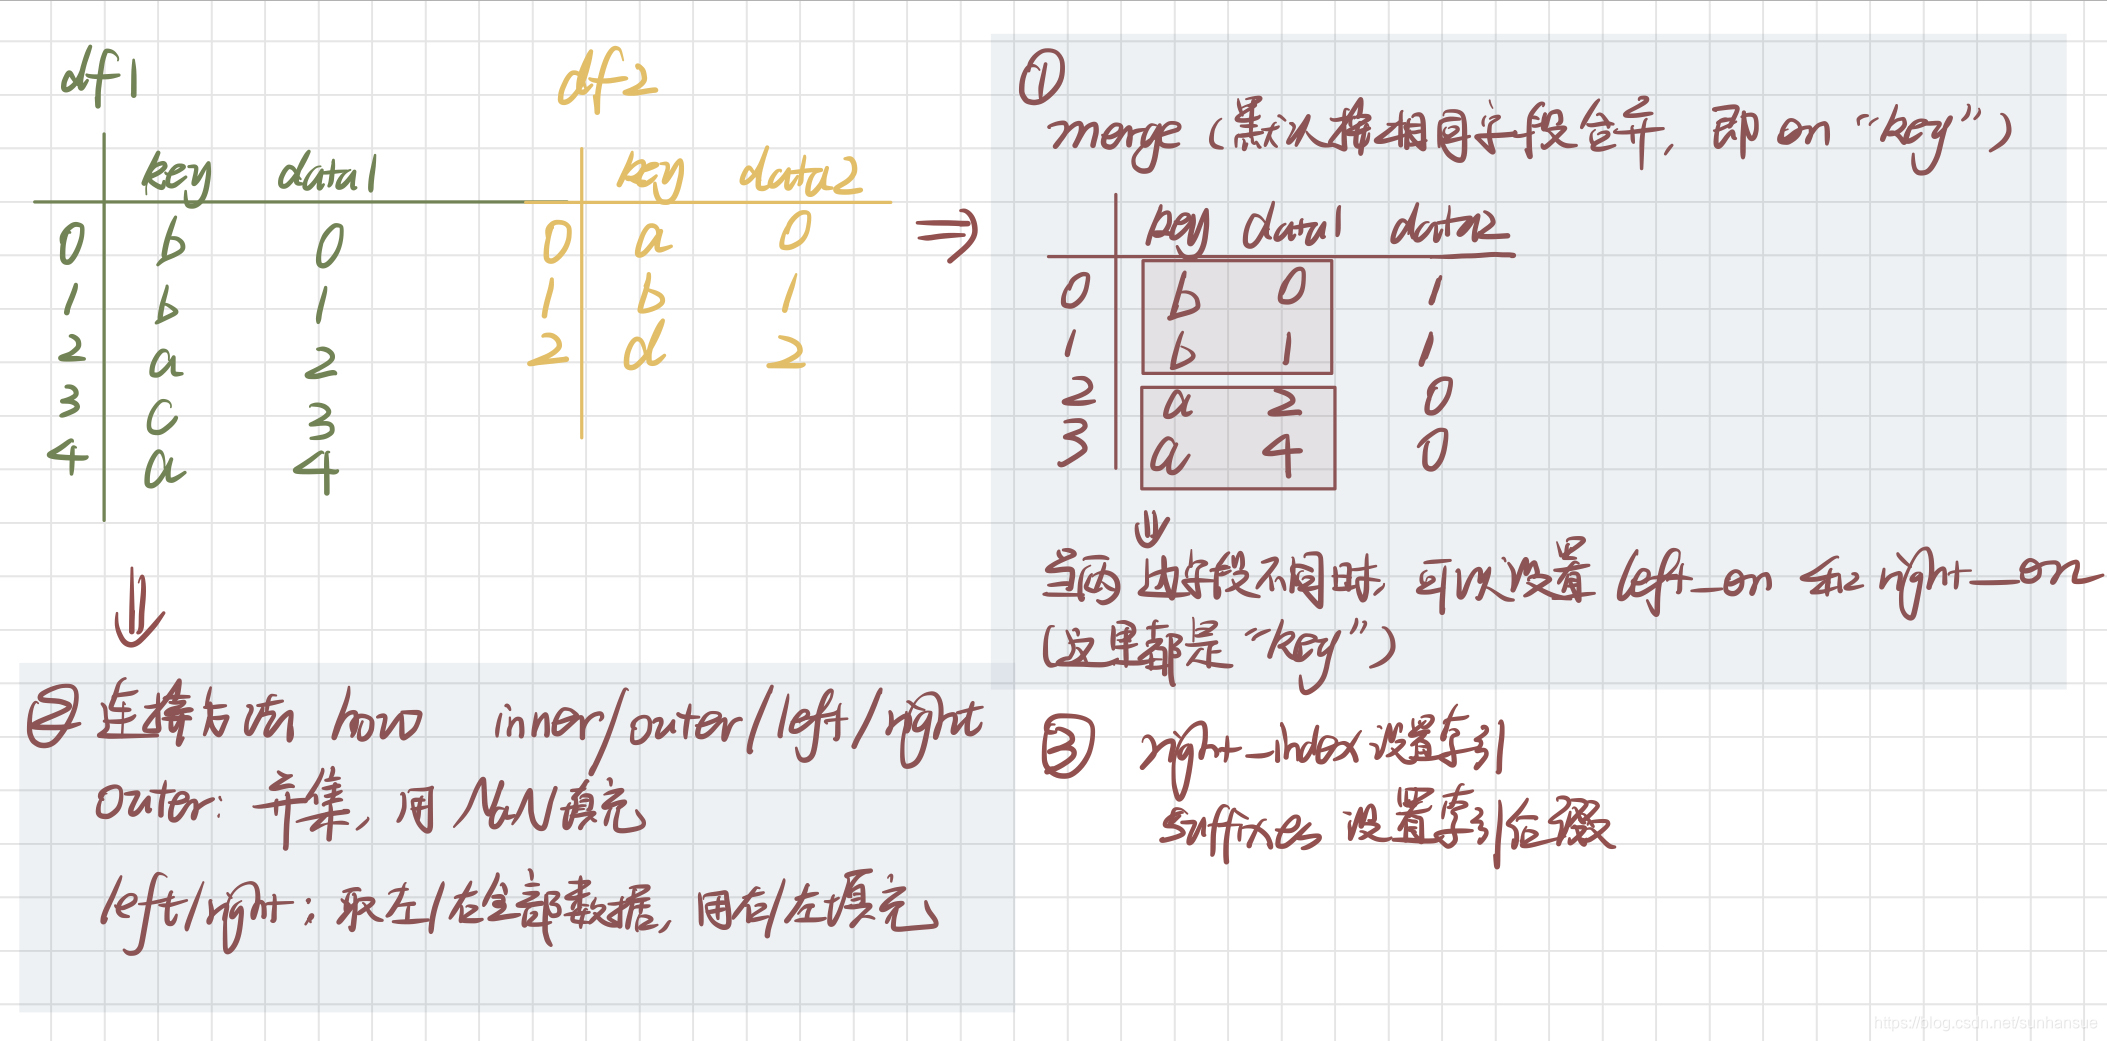 df1
key data1
0 b 0
1 b 1
2 a 2
3 c 3
4 a 4
df2
key data2
0 a 0
1 b 1
2 d 2
⇒
①
merge (默认将相同字段合并, 即 on “key”)
key data1 data2
0 b 0 1
1 b 1 1
2 a 2 0
3 a 4 0
⇓
当两边字段不同时, 可以设置 left_on 和 right_on
(这里都是 “key”)
⇓
② 连接方法 how inner/outer/left/right
outer: 并集, 用 NaN 填充
left/right: 取左/右全部数据, 用右/左填充
③ right_index 设置索引
suffixes 设置索引后缀
https://blog.csdn.net/sunhansue